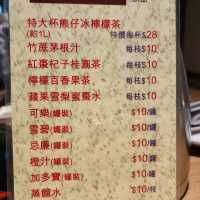 特大杯熊仔冰檸檬茶
(約1L) 特價每杯$28
竹蔗茅根汁 每枝$10
紅棗杞子桂圓茶 每枝$10
檸檬百香果茶 每枝$10
蘋果雪梨蜜棗水 每枝$10
可樂(罐裝) $10/罐
雪碧(罐裝) $10/罐
忌廉(罐裝) $10/罐
橙汁(罐裝) $10/罐
加多寶(罐裝) $10/罐
蒸餾水 $10/枝